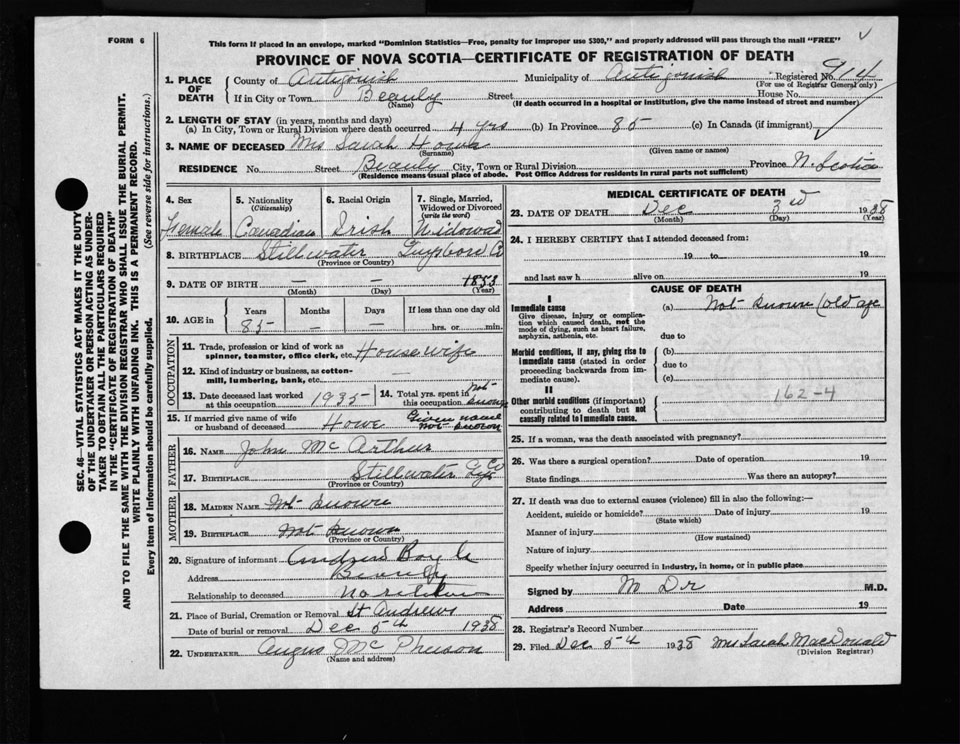 FORM 6
This form if placed in an envelope, marked "Dominion Statistics—Free, penalty for improper use $300," and properly addressed will pass through the mail "FREE"
PROVINCE OF NOVA SCOTIA—CERTIFICATE OF REGISTRATION OF DEATH
1. PLACE OF DEATH
County of Antigonish Municipality of Antigonish Registered No. 914
(For use of Registrar General only)
If in City or Town Beauly Street House No.
(Name) (If death occurred in a hospital or institution, give the name instead of street and number)
2. LENGTH OF STAY (in years, months and days)
(a) In City, Town or Rural Division where death occurred 4 yrs (b) In Province 85 (c) In Canada (if immigrant)
3. NAME OF DECEASED Mrs Sarah Howe
(Surname) (Given name or names)
RESIDENCE No. Street Beauly City, Town or Rural Division Province N. Scotia
(Residence means usual place of abode. Post Office Address for residents in rural parts not sufficient)
4. Sex 5. Nationality (Citizenship) 6. Racial Origin 7. Single, Married, Widowed or Divorced (write the word)
Female Canadian Irish Widowed
8. BIRTHPLACE Stillwater Guysboro Co
(Province or Country)
9. DATE OF BIRTH — — 1853
(Month) (Day) (Year)
10. AGE in Years Months Days If less than one day old
85 — — hrs. or min.
OCCUPATION
11. Trade, profession or kind of work as spinner, teamster, office clerk, etc. Housewife
12. Kind of industry or business, as cotton-mill, lumbering, bank, etc. —
13. Date deceased last worked at this occupation 1935- 14. Total yrs. spent in this occupation Not-known
15. If married give name of wife or husband of deceased Howe Given name not-known
FATHER
16. NAME John McArthur
17. BIRTHPLACE Stillwater Guy Co
(Province or Country)
MOTHER
18. MAIDEN NAME Not-known
19. BIRTHPLACE Not known
(Province or Country)
20. Signature of informant Andrew Boyle
Address Beauly
Relationship to deceased No relation
21. Place of Burial, Cremation or Removal St Andrews
Date of burial or removal Dec 5th 1938
22. UNDERTAKER Angus McPherson
(Name and address)
MEDICAL CERTIFICATE OF DEATH
23. DATE OF DEATH Dec 3rd 1938
(Month) (Day) (Year)
24. I HEREBY CERTIFY that I attended deceased from:
19 to 19
and last saw h alive on 19
CAUSE OF DEATH
I
Immediate cause (a) Not-known (old age
Give disease, injury or complication which caused death, not the mode of dying, such as heart failure, asphyxia, asthenia, etc.
due to
Morbid conditions, if any, giving rise to immediate cause (stated in order proceeding backwards from immediate cause).
(b)
due to
(c)
II
Other morbid conditions (if important) contributing to death but not causally related to immediate cause.
162-4
25. If a woman, was the death associated with pregnancy?
26. Was there a surgical operation? Date of operation 19
State findings Was there an autopsy?
27. If death was due to external causes (violence) fill in also the following:—
Accident, suicide or homicide? Date of injury 19
(State which)
Manner of injury
(How sustained)
Nature of injury
Specify whether injury occurred in industry, in home, or in public place
Signed by No Dr M.D.
Address Date 19
28. Registrar's Record Number
29. Filed Dec 5th 1938 Mrs Sarah MacDonald
(Division Registrar)
SEC. 46—VITAL STATISTICS ACT MAKES IT THE DUTY OF THE UNDERTAKER OR PERSON ACTING AS UNDERTAKER TO OBTAIN ALL THE PARTICULARS REQUIRED IN THE "CERTIFICATE OF REGISTRATION OF DEATH"
AND TO FILE THE SAME WITH THE DIVISION REGISTRAR WHO SHALL ISSUE THE BURIAL PERMIT.
WRITE PLAINLY WITH UNFADING INK. THIS IS A PERMANENT RECORD.
Every item of information should be carefully supplied. (See reverse side for instructions.)